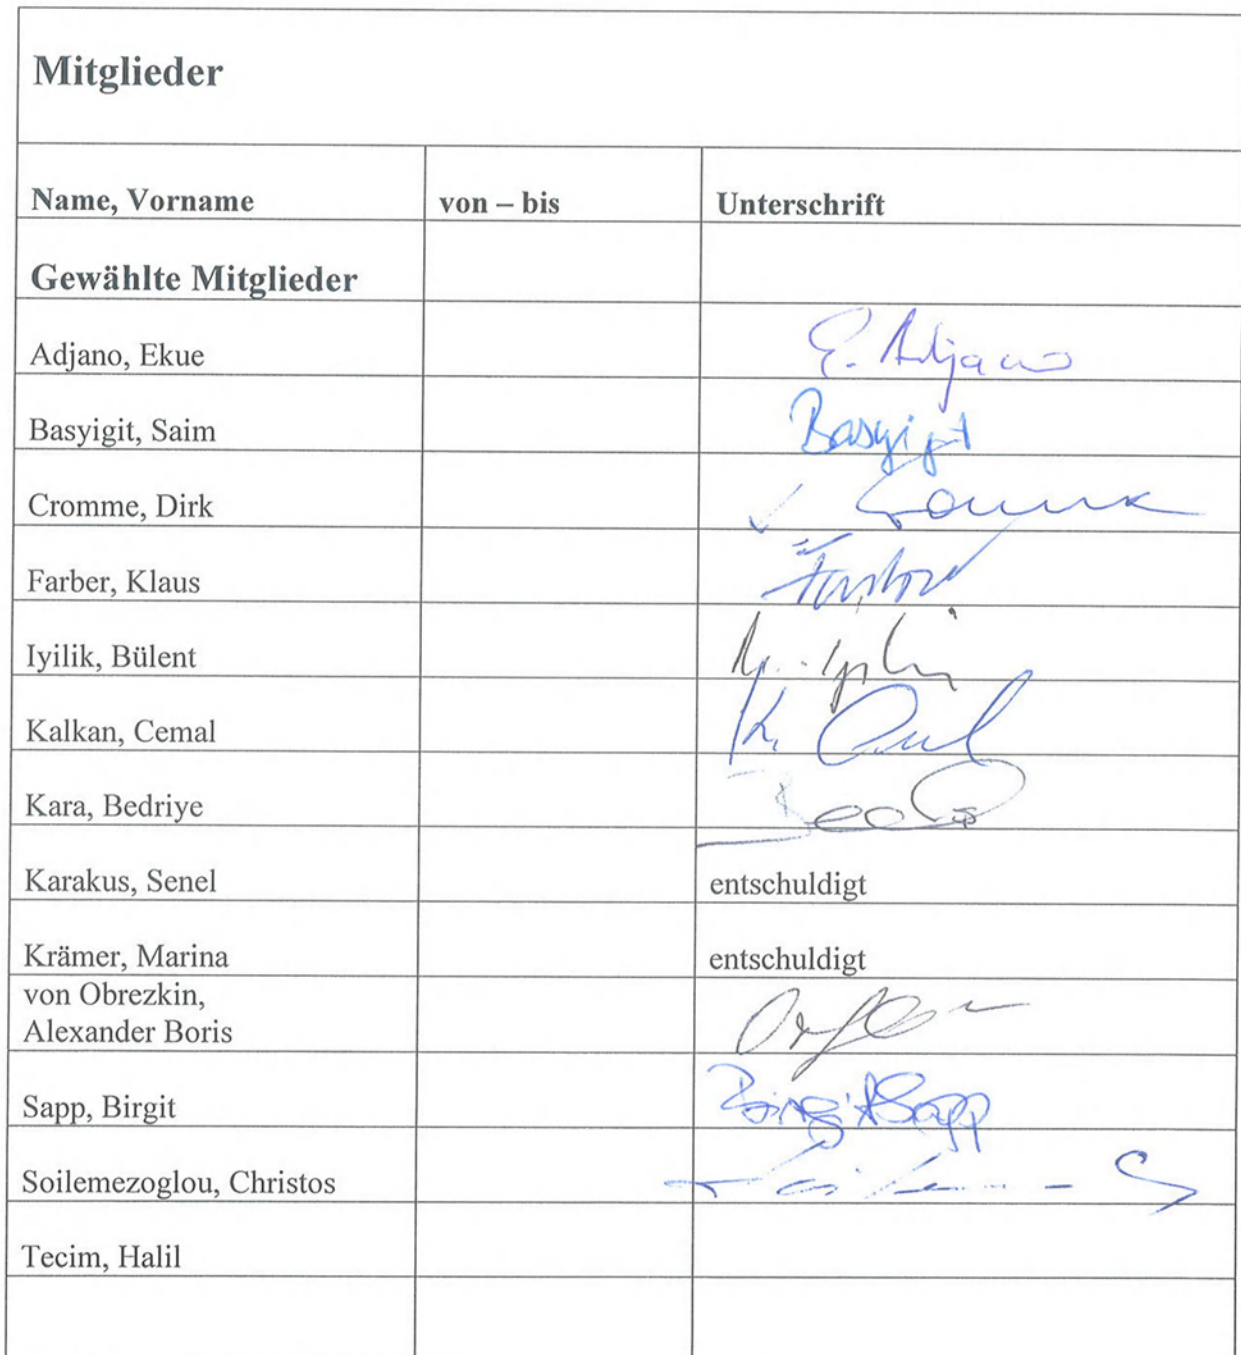 Mitglieder
Name, Vorname von – bis Unterschrift
Gewählte Mitglieder
Adjano, Ekue E. Adjano
Basyigit, Saim Basyigit
Cromme, Dirk
Farber, Klaus
Iyilik, Bülent
Kalkan, Cemal
Kara, Bedriye
Karakus, Senel entschuldigt
Krämer, Marina entschuldigt
von Obrezkin,
Alexander Boris
Sapp, Birgit Birgit Sapp
Soilemezoglou, Christos
Tecim, Halil